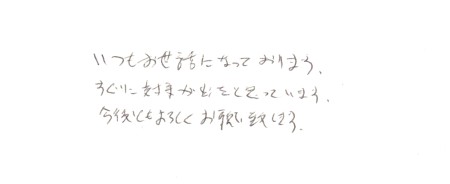 いつもお世話になっております。
すぐに対策が出ると思っています。
今後ともよろしくお願い致します。